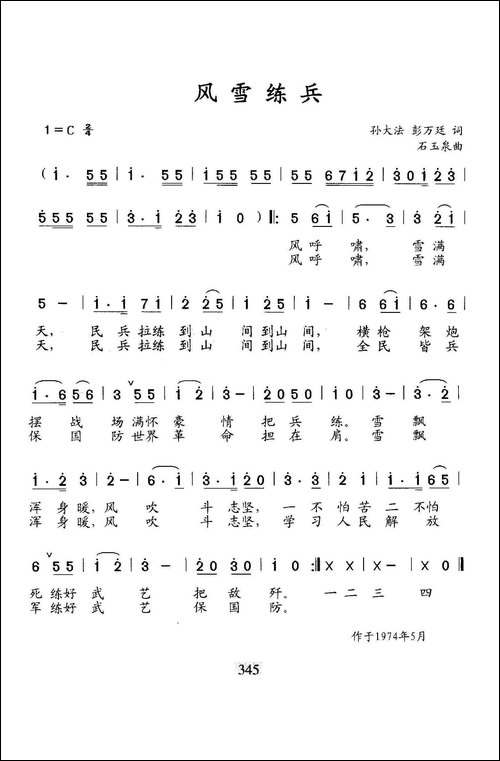 风雪练兵
1=C
孙大法 彭万廷 词
石玉泉曲
(1· 55|1· 55|1555 1555|55 6712|3013 23|
555 55|555 55|3·1 23|1 0)‖:5 61|5· 3|3 21|
风呼 啸， 雪满
风呼 啸， 雪满
5 -|1·1 71|2 25|3020|3 2|1 -|6 61|6·6|
天， 民兵拉练到山 间到山间， 横枪 架炮
天， 民兵拉练到山 间到山间， 全民 皆兵
1·6 56|3 55|1 2|3 -|2050|1 0|3·2|1 2|
摆 战 场满怀豪 情 把兵 练。雪飘
保 国 防世界革 命 担在 肩。雪飘
浑身暖，风吹 斗志坚，一不怕苦二不怕
浑身暖，风吹 斗志坚，学习人民解 放
6 55|1 2|3 -|2030|1 0:‖X X|X -|X 0‖
死练好武 艺 把敌 歼。 一二三 四
军练好武 艺 保国 防。
作于1974年5月
345